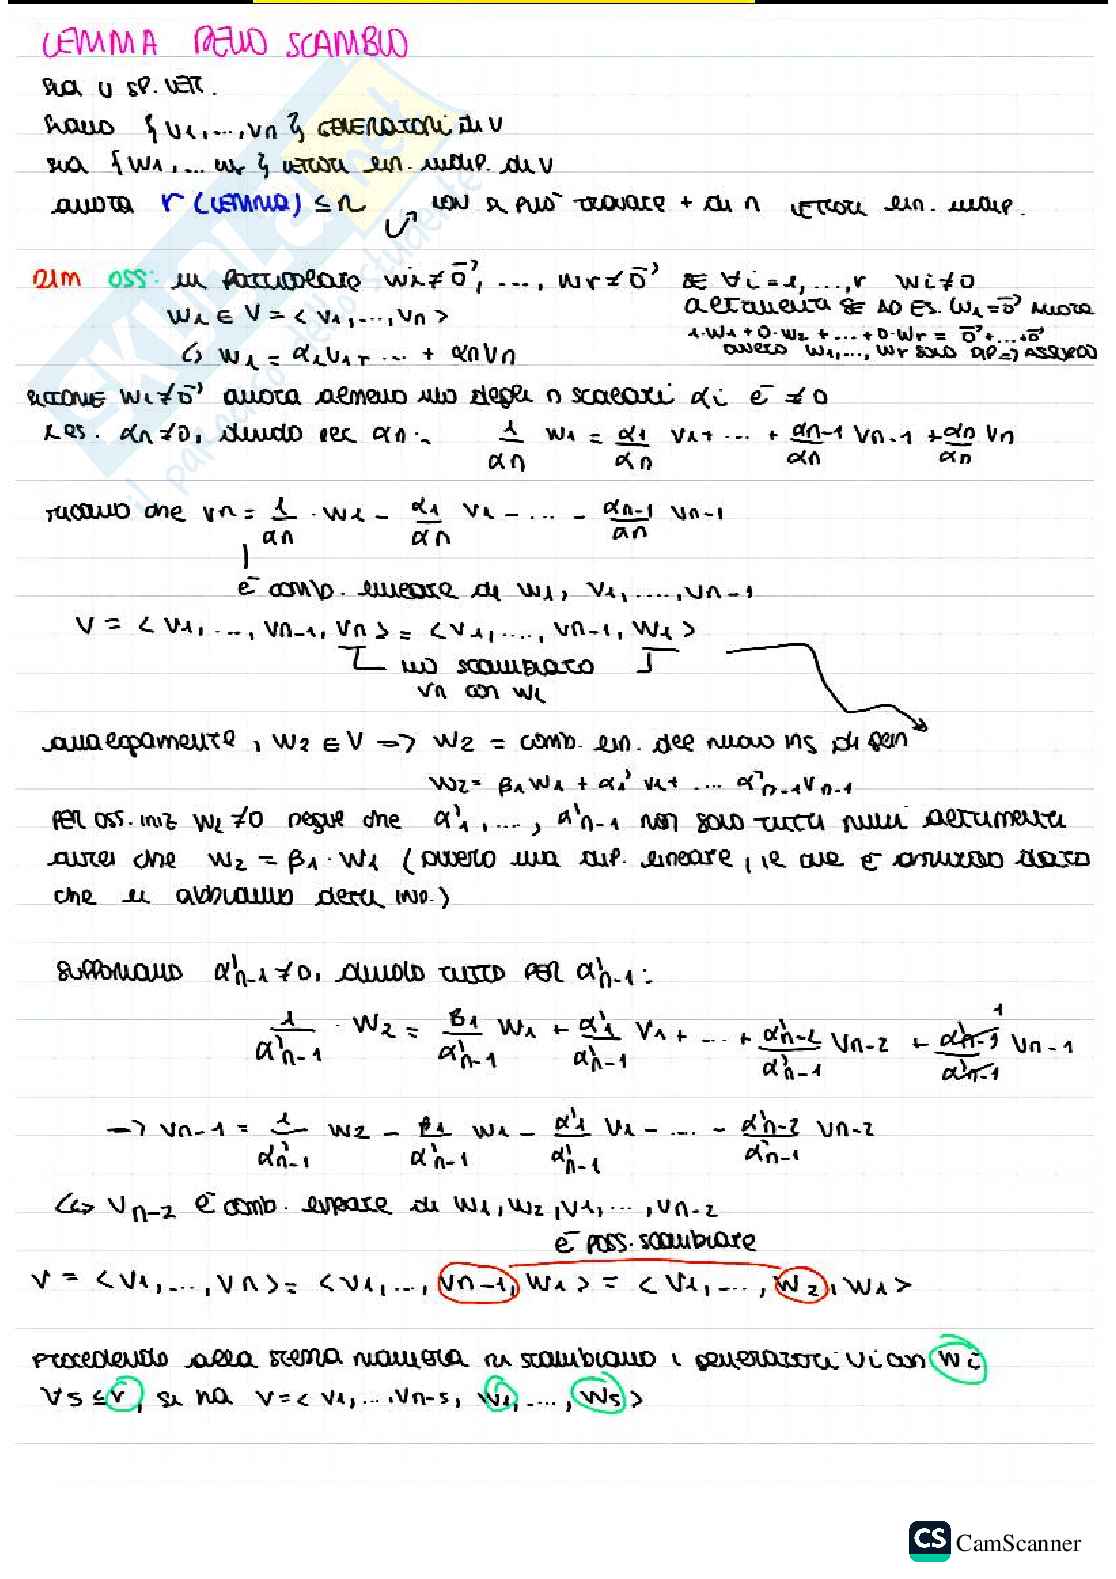 LEMMA DELLO SCAMBIO
sia V SP. VETT.
siano {v1,...,vn} GENERATORI di V
sia {w1,... wr} vettori lin. indip. di V
allora r (LEMMA) ≤ n non si può trovare + di n vettori lin. indip.
DIM OSS: in particolare wi ≠ 0⃗, ..., wr ≠ 0⃗ SE ∀i = 1, ..., r wi ≠ 0
w1 ∈ V = <v1,...,vn>
altrimenti SE AD ES. w1 = 0⃗ allora
1·w1 + 0·w2 + ... + 0·wr = 0⃗ + ... 0⃗
ovvero w1,..., wr sono DIP => ASSURDO
↳ w1 = α1v1 + ... + αnvn
siccome wi ≠ 0⃗ allora almeno uno degli n scalari αi è ≠ 0
x es. αn ≠ 0, divido per αn: 1/αn w1 = α1/αn v1 + ... + αn-1/αn vn-1 + αn/αn vn
ricavo che vn = 1/αn · w1 - α1/αn v1 - ... - αn-1/αn vn-1
è comb. lineare di w1, v1, ..., vn-1
V = <v1, ..., vn-1, vn> = <v1, ..., vn-1, w1>
ho scambiato
vn con w1
analogamente, w2 ∈ V -> w2 = comb. lin. del nuovo ins di gen
w2 = β1w1 + α1' v1 + ... α'n-1vn-1
PER OSS. iniz w2 ≠ 0 segue che α'1, ..., α'n-1 non sono tutti nulli altrimenti
avrei che w2 = β1 · w1 (ovvero una dip. lineare, il che è assurdo dato
che li abbiamo detti IND.)
supponiamo α'n-1 ≠ 0, divido tutto PER α'n-1:
1/α'n-1 · w2 = β1/α'n-1 w1 + α'1/α'n-1 v1 + ... + α'n-2/α'n-1 vn-2 + α'n-1/α'n-1 1 vn-1
-> vn-1 = 1/α'n-1 w2 - β1/α'n-1 w1 - α'1/α'n-1 v1 - ... - α'n-2/α'n-1 vn-2
↳ vn-2 è comb. lineare di w1, w2, v1, ..., vn-2
è poss. scambiare
V = <v1, ..., vn> = <v1, ..., vn-1, w1> = <v1, ..., w2, w1>
procedendo alla stessa maniera si scambiano i generatori vi con wi
∀s ≤ r, si ha V = <v1, ... vn-s, w1, ..., ws>
SKUOLA.net
il paradiso dello studente
CS CamScanner